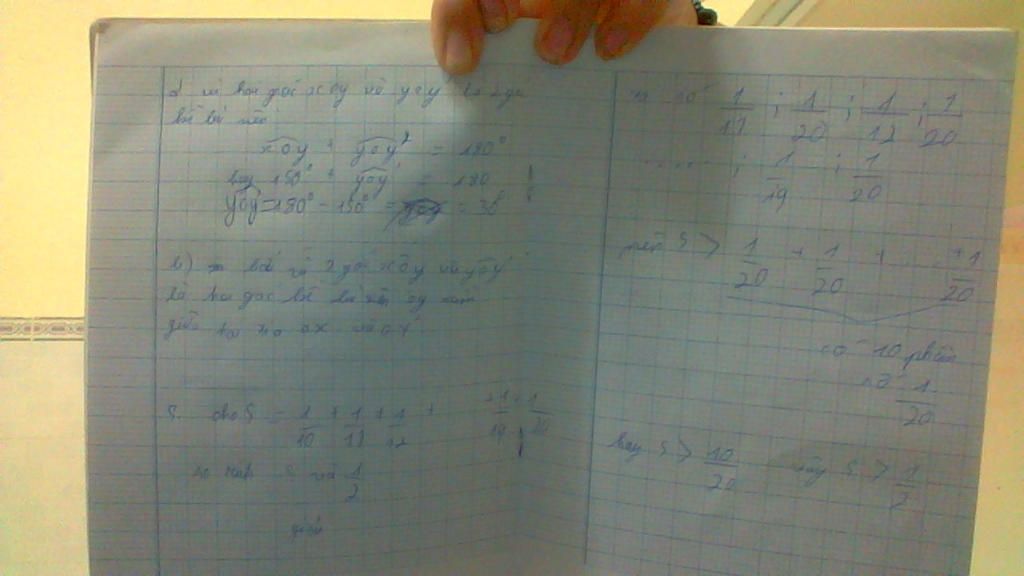 vì hai góc xOy và yOy' là 2 góc
kề bù nên
xOy + yOy' = 180°
hay 150° + yOy' = 180
yOy' = 180° - 150° = 30°
b) vì 2 góc xOy và yOy'
là hai góc kề bù nên Oy nằm
giữa hai tia Ox và Ox'
5. cho S = 1/10 + 1/11 + 1/12 + + 1/19 + 1/20
so sánh S và 1/2
giải
ta có 1/11 > 1/20 ; 1/12 > 1/20
..... ; 1/19 ; 1/20
nên S > 1/20 + 1/20 + ... + 1/20
có 10 phân
số 1/20
hay S > 10/20 vậy S > 1/2